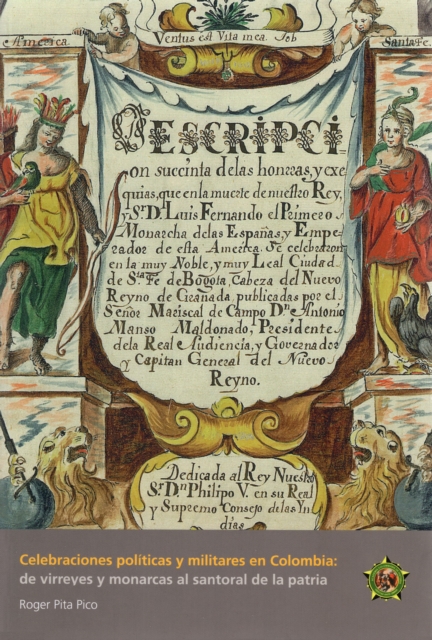 Ventus est Vita mea. Job
America.
Santa Fe.
DESCRIPCI
on succinta de las honrras, y exe
quias, que en la muerte de nuestro Rey,
y Sr. D. Luis Fernando el Primero
Monarcha de las Españas, y Empe
rador de esta America. Se celebraron
en la muy Noble, y muy Leal Ciudad
de Sta. Fe de Bogota, Cabeza del Nuevo
Reyno de Granada, publicadas por el
Señor Mariscal de Campo Dn. Antonio
Manso Maldonado, Presidente
de la Real Audiencia, y Governador
y Capitan General del Nuevo
Reyno.
Dedicada al Rey Nuestro
Sr. Dn. Philipo V. en su Real
y Supremo Consejo de las Yn
dias
Celebraciones políticas y militares en Colombia:
de virreyes y monarcas al santoral de la patria
Roger Pita Pico